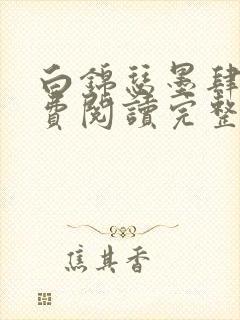 白錦瑟墨肆
費閱讀完整
焦其香